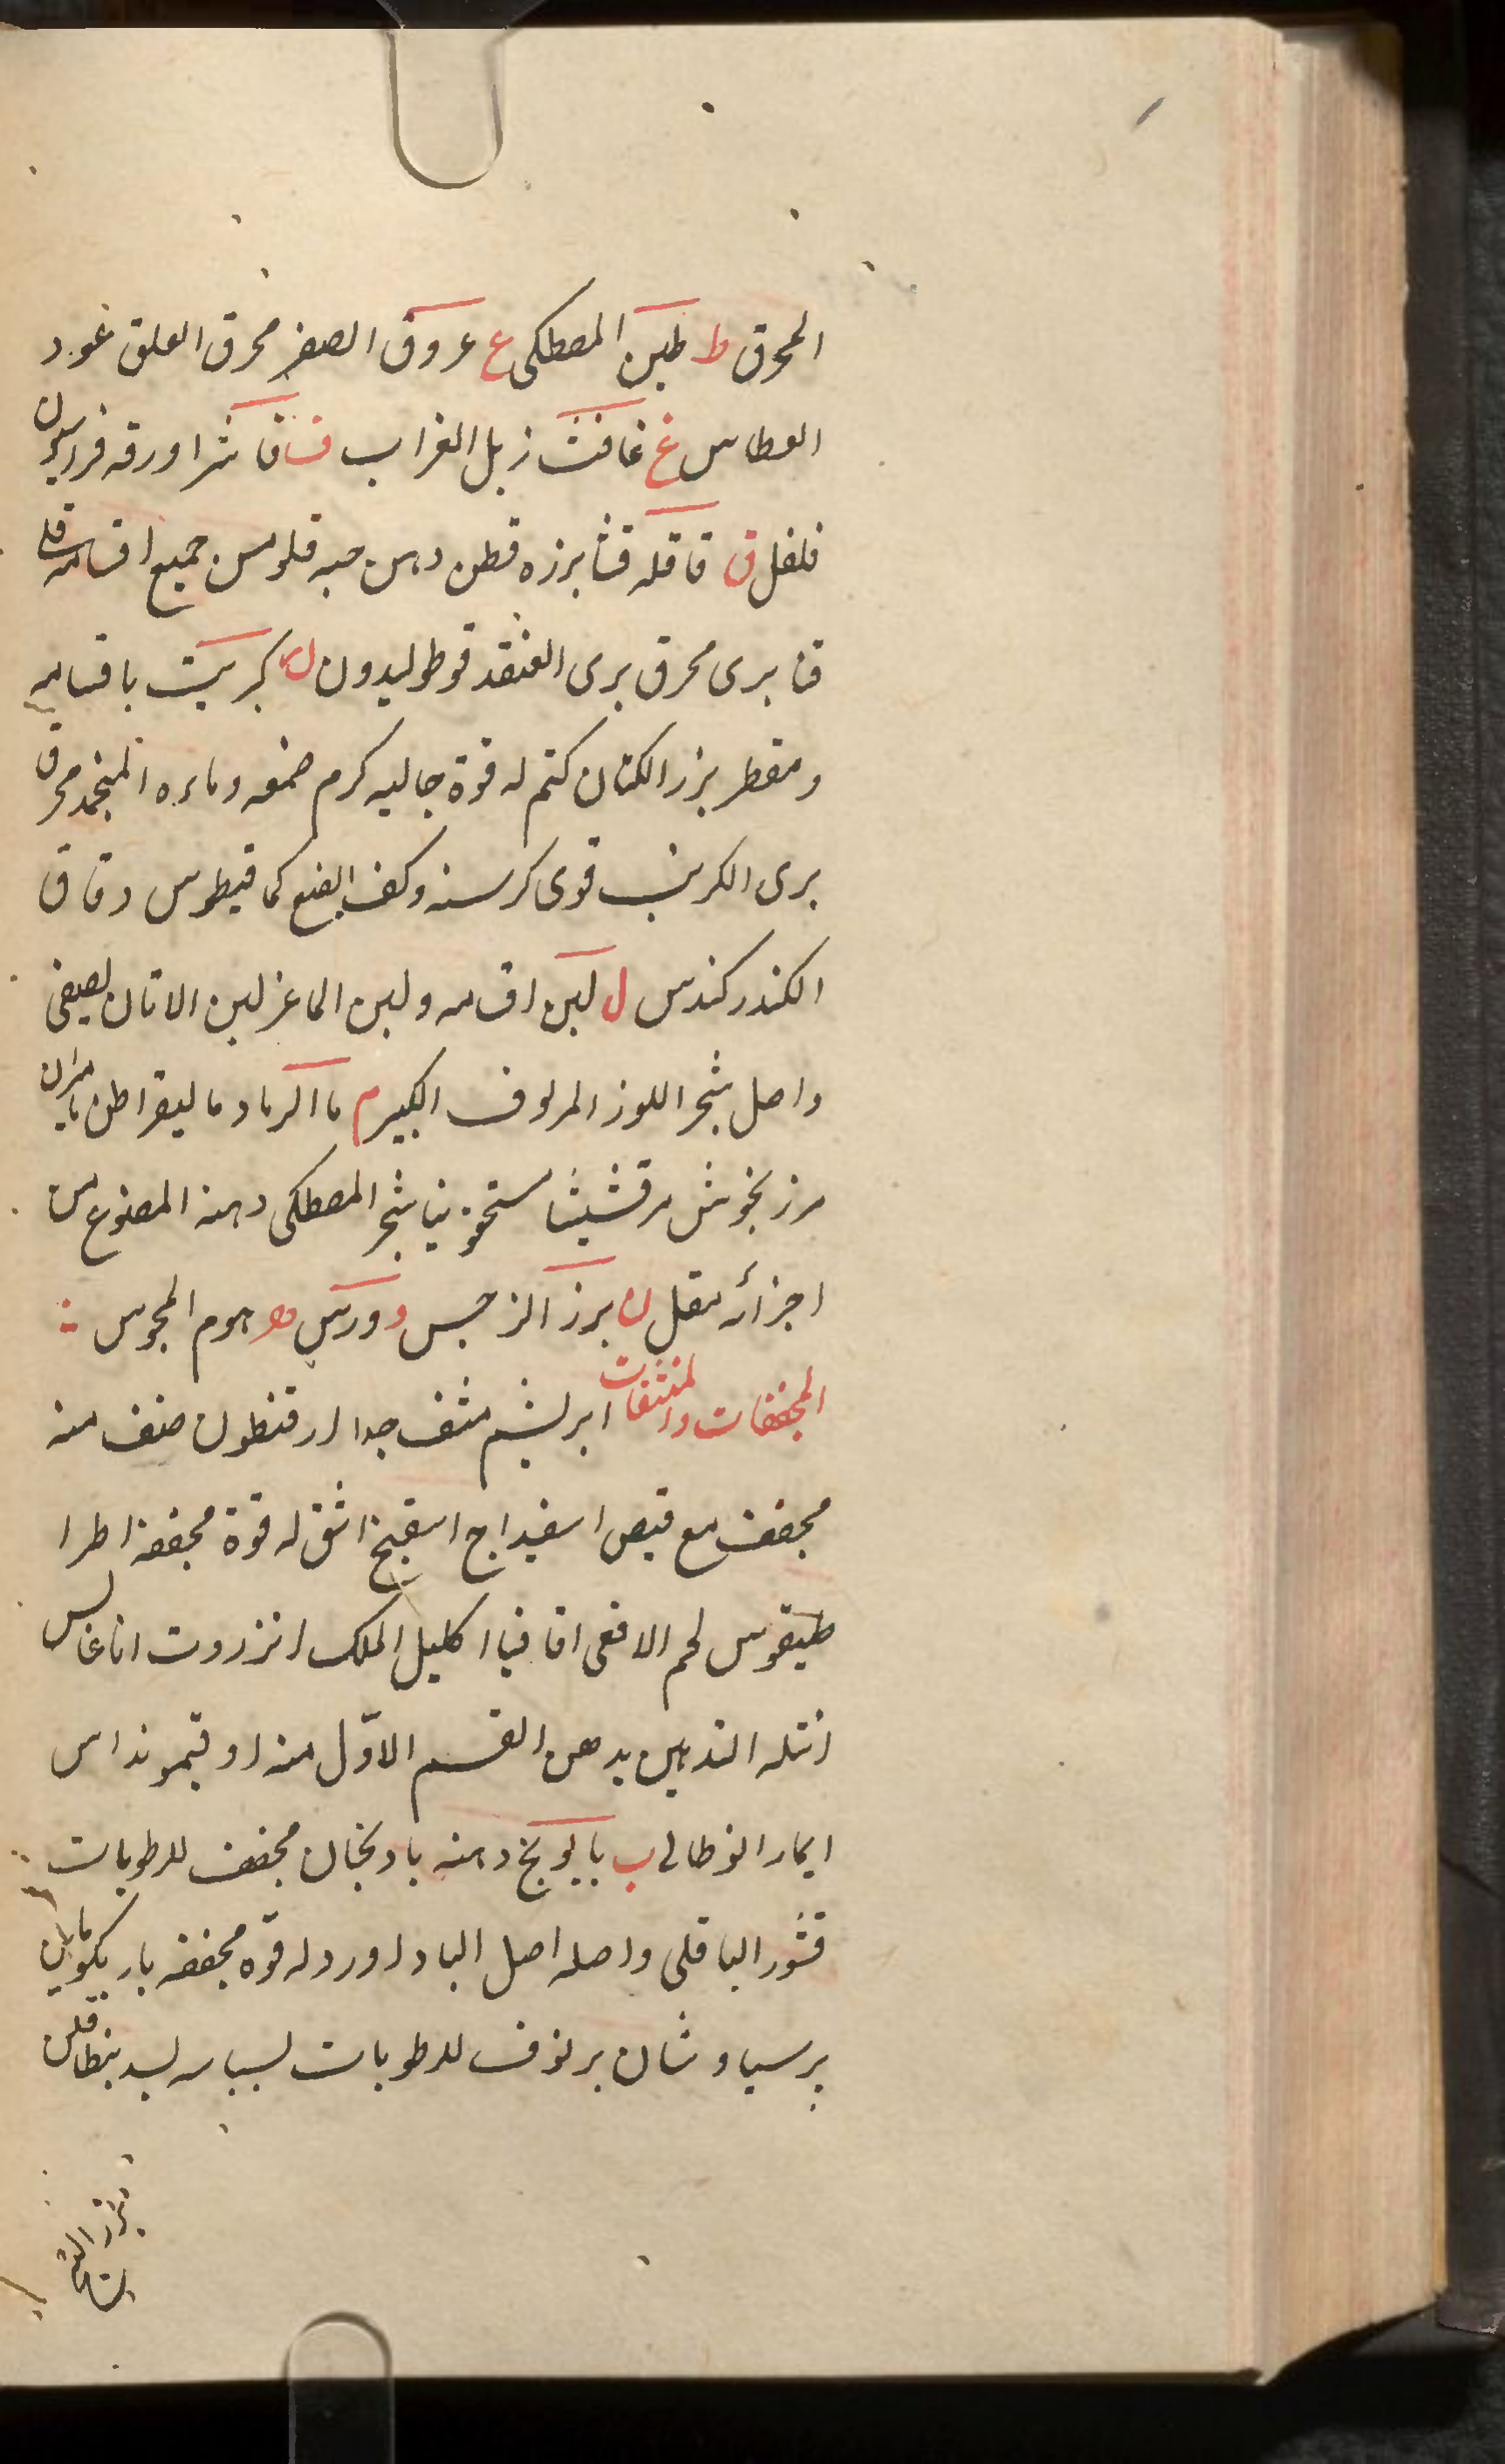 المحرق ط طين المصطكى ع عروق الصفر محرق العلق عود
العطاس غ غافث زبل الغراب ف فاشرا ورقه فراسيون
فلفل ق قاقله قثا بزره قطن دهن حبه قلومس جميع اقسامه قلى
قنا برى محرق برى القنفد قوطوليدون ك كبريت باقسامه
ومقطر بزر الكتان كتم له قوة جاليه كرم صمغه وماءه المنجمد محرق
برى الكرنب قوى كرسنه وكف الضبع كمافيطوس دقاق
الكندر كندس ل لبن اقسامه ولبن الماعز لبن الاتان لصيقى
واصل شجر اللوز المر لوف الكبير م ما الرماد ماليقراطن ماميران
مرزنجوش مرقشيثا مستحقونيا شجر المصطكى دهنه المصنوع من
اجزائه مقل ن بزر النرجس و ورس ه هوم المجوس
المجففات والمنشفات ابريشم منشف جدا ارقنطون صنف منه
مجفف مع قبض اسفيداج اسفنج اشق له قوة مجففة اطرا
طيقوس لحم الافعى اقاقيا اكليل الملك انزروت اناغالس
انتله التدهين بدهن القسم الاول منه اوقيمونداس
ايمارانوطالى ب بابونج دهنه بادنجان مجفف للرطوبات
قشور الباقلى واصله اصل البادداورد له قوه مجففه باريكومانن
برسياوشان برنوف للرطوبات لسبباسه لسد بنطافلن